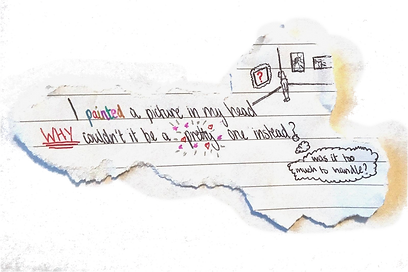 ?
I painted a picture in my head
WHY couldn't it be a pretty one instead?
was it too
much to handle?